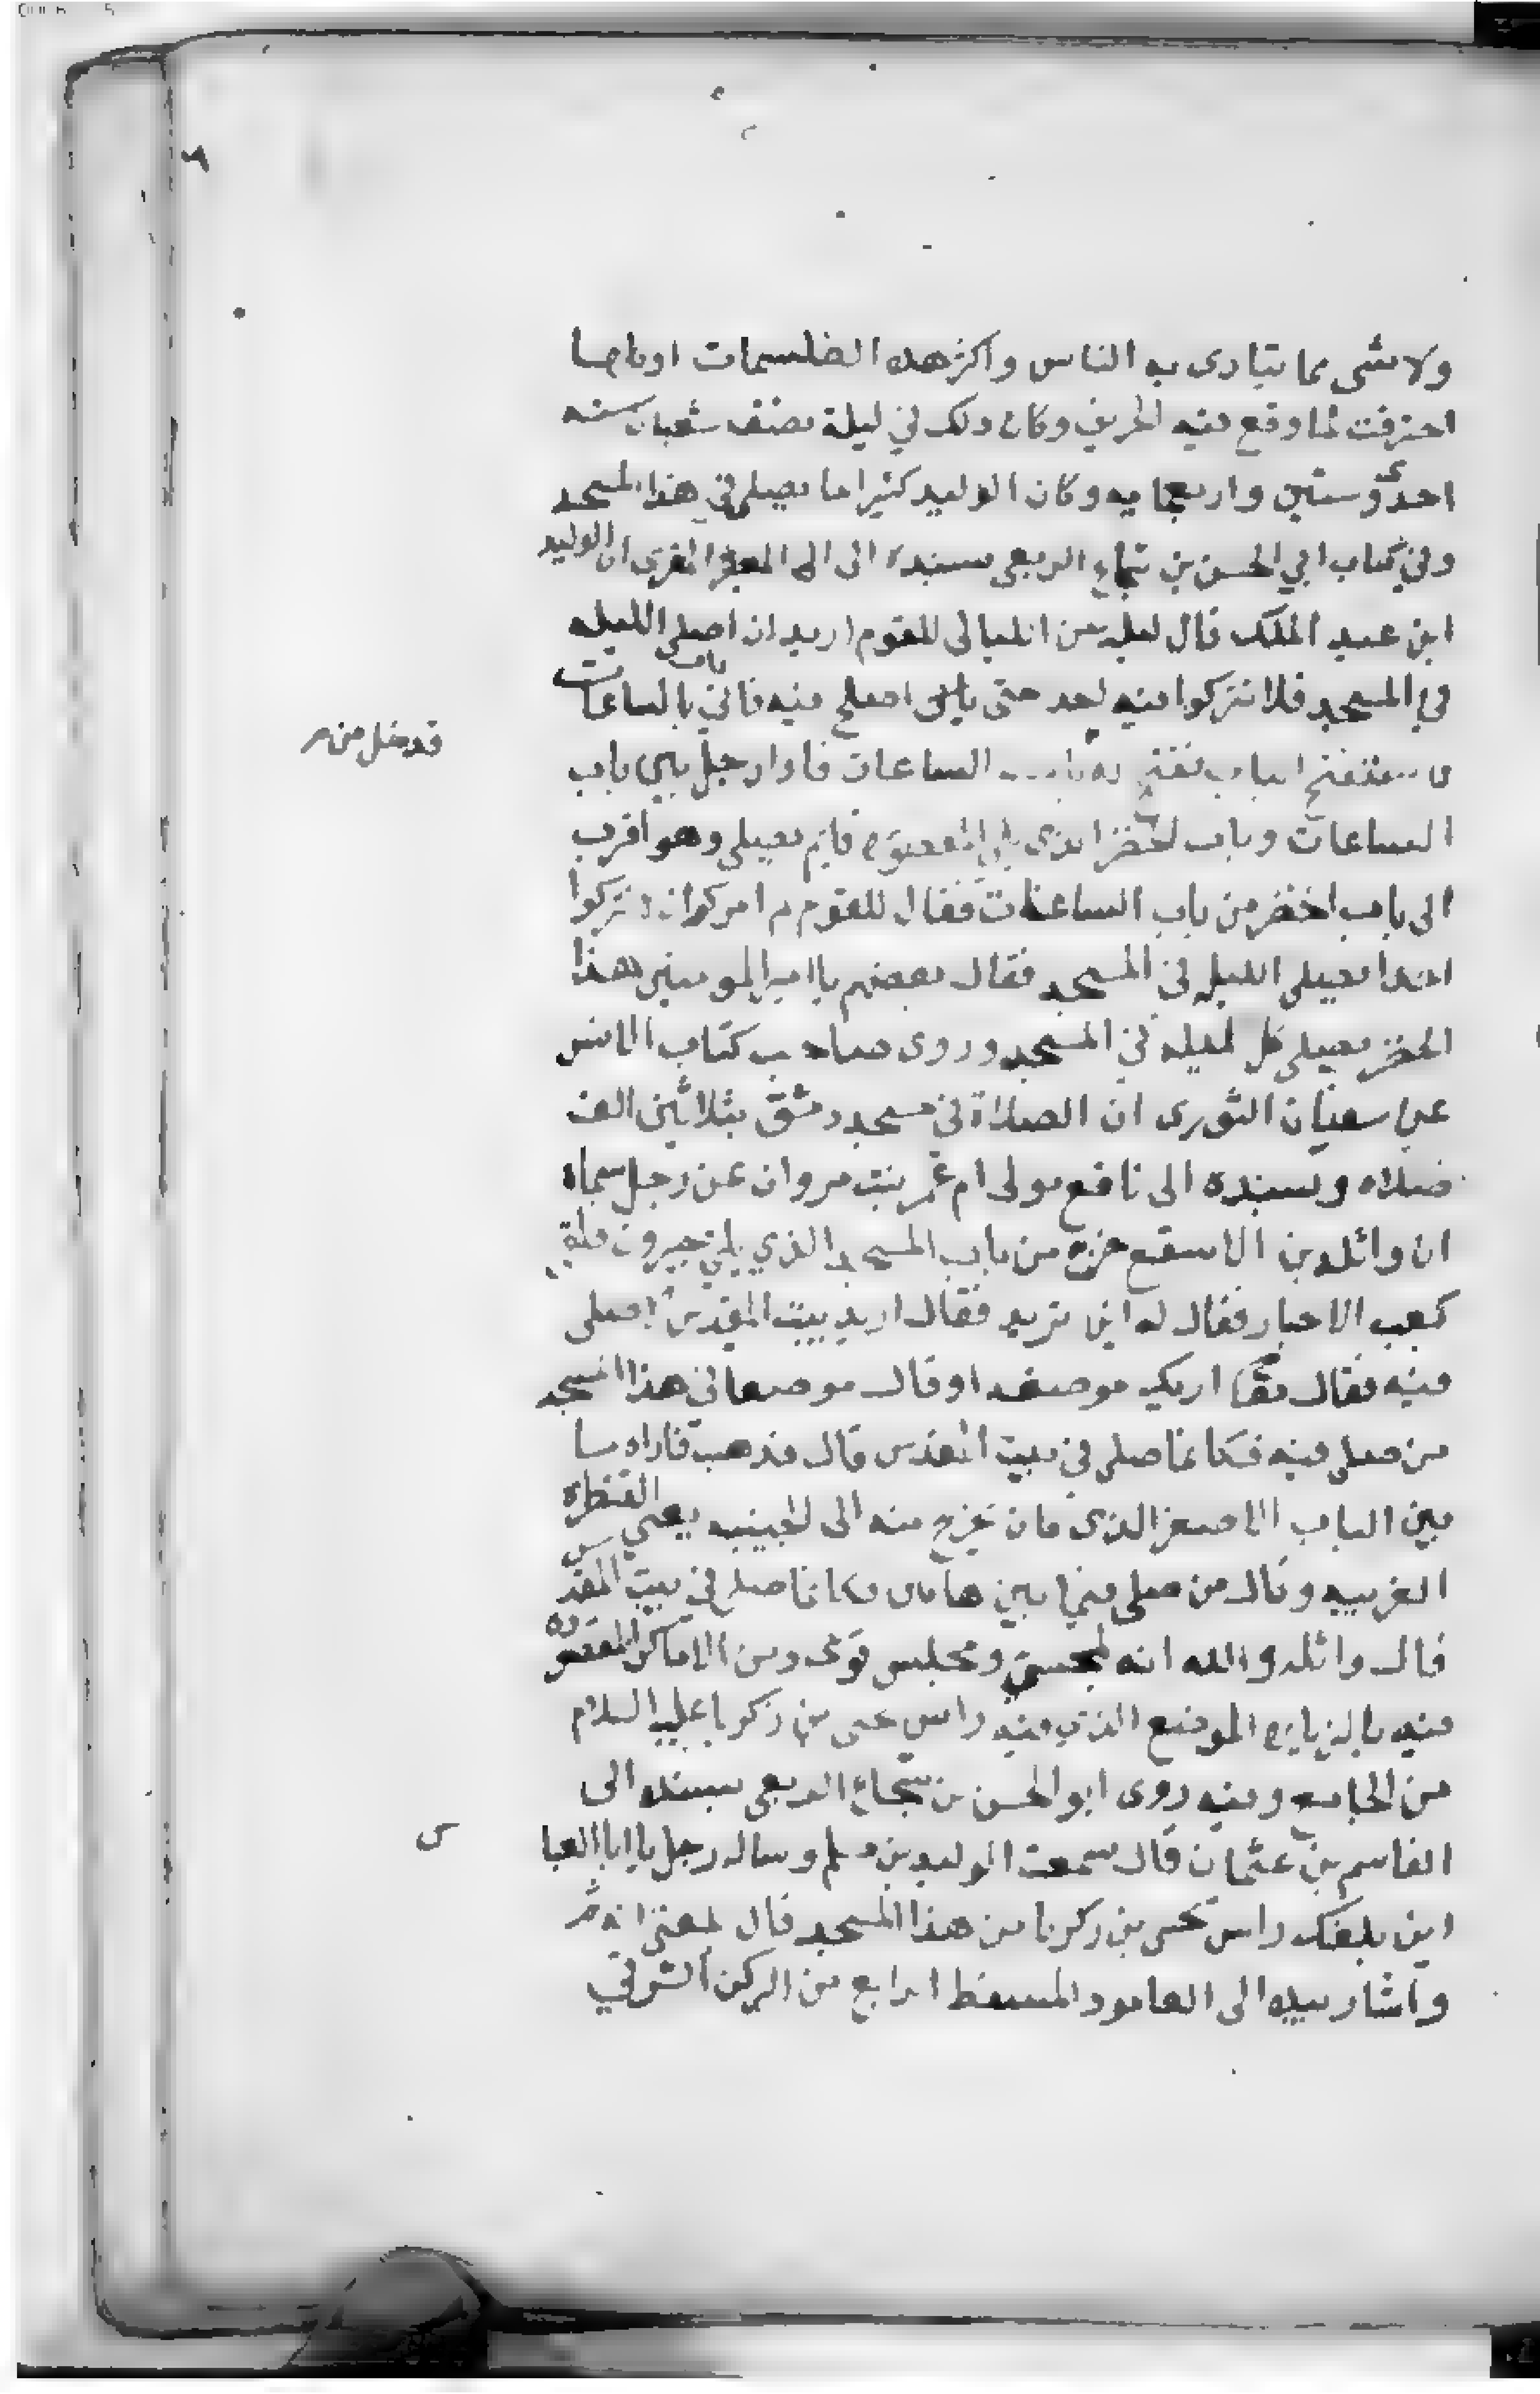 ولا شى مما يتادى به الناس واكثر هذه الطلسمات اوكلها
احترقت لما وقع فيه الحريق وكان ذلك في ليلة نصف شعبان سنه
احدى وستين واربعمايه وكان الوليد كثيرا ما يصلى في هذا المسجد
وفي كتاب ابي الحسن بن شجاع الربعى بسنده الى المقرى ان الوليد
ابن عبد الملك قال ليله من الليالى للقوم اريد ان اصلى الليله
في المسجد فلا تتركوا فيه احد حتى اصلى فيه فاتي باب الساعات
قد دخل من
فاستفتح الباب ففتح له باب الساعات فاذا رجل بين باب
الساعات وباب الخضرا الذى يلي المقصوره قايم يصلى وهو اقرب
الى باب الخضر من باب الساعات فقال للقوم الم امركم ان لا تتركوا
احدا يصلى الليله في المسجد فقال بعضهم يا امير المومنين هذا
الخضر يصلى كل ليله في المسجد وروى صاحب كتاب الانس
عن سفيان الثورى ان الصلاة في مسجد دمشق بثلاثين الف
صلاه وبسنده الى نافع مولى ام عمر بنت مروان عن رجل سماه
ان واثله بن الاسقع خرج من باب المسجد الذي يلي جيرون فلقى
كعب الاحبار فقال له اين تريد فقال اريد بيت المقدس اصلى
فيه فقال اريك موضعا في هذا المسجد
من صلى فيه فكانما صلى في بيت المقدس قال فذهب فاراه ما
بين الباب الاصغر الذى كان يخرج منه الى الجينيه يعنى القنطره
الغربيه وقال من صلى فيما بين هاتين فكانما صلى في بيت المقدس
قال واثله والله انه لمجلسي ومجلس قومى ومن الاماكن المقصوده
فيه بالزياره الموضع الذى فيه راس يحيى بن زكريا عليه السلام
من الجامع وفيه روى ابو الحسن بن شجاع الربعى بسنده الى
القاسم بن عثمان قال سمعت الوليد بن مسلم وساله رجل يا ابا العباس
اين بلغك راس يحيى بن زكريا من هذا المسجد قال بلغنى انه ثم
واشار بيده الى العامود المسفط الرابع من الركن الشرقي